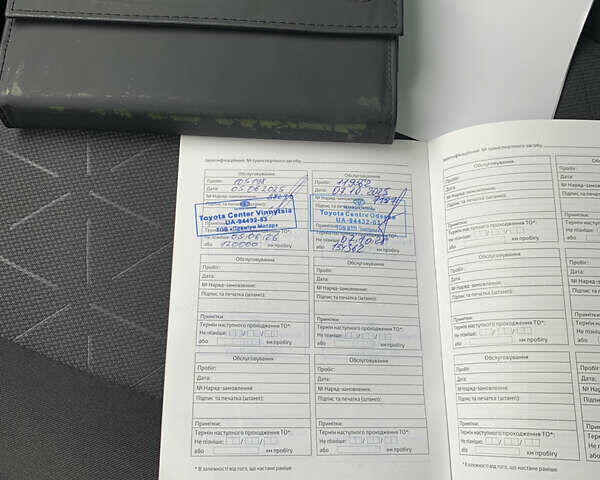 Ідентифікаційний № транспортного засобу
Обслуговування
Пробіг: 105198
Дата: 05.06.2025
№ Наряд-замовлення:
Підпис та печатка (штамп):
Toyota Center Vinnytsia
UA-94432-53
ТОВ «Преміум Мотор»
Не пізніше: 05.06.26
або 120000 км пробігу
Обслуговування
Пробіг:
Дата: 07.10.2025
№ Наряд-замовлення:
Підпис та печатка
Toyota Centre Odessa
UA-94432-03
Не пізніше:
або км пробігу
Обслуговування
Пробіг:
Дата:
№ Наряд-замовлення:
Підпис та печатка (штамп):
Примітки:
Термін наступного проходження ТО*:
Не пізніше: / /
або км пробігу
Обслуговування
Пробіг:
Дата:
№ Наряд-замовлення:
Підпис та печатка (штамп):
Примітки:
Термін наступного проходження ТО*:
Не пізніше: / /
або км пробігу
Обслуговування
Пробіг:
Дата:
№ Наряд-замовлення:
Підпис та печатка (штамп):
Примітки:
Термін наступного проходження ТО*:
Не пізніше: / /
або км пробігу
Обслуговування
Пробіг:
Дата:
№ Наряд-замовлення:
Підпис та печатка (штамп):
Примітки:
Термін наступного проходження ТО*:
Не пізніше: / /
або км пробігу
* В залежності від того, що настане раніше
Ідентифікаційний № транспортного засобу
Обслуговування
Пробіг:
Дата:
№ Наряд-замовлення:
Підпис та печатка (штамп):
Примітки:
Термін наступного проходження ТО*:
Не пізніше: / /
або км пробігу
Обслуговування
Пробіг:
Дата:
№ Наряд-замовлення:
Підпис та печатка (штамп):
Примітки:
Термін наступного проходження ТО*:
Не пізніше: / /
або км пробігу
Обслуговування
Пробіг:
Дата:
№ Наряд-замовлення:
Підпис та печатка (штамп):
Примітки:
Термін наступного проходження ТО*:
Не пізніше: / /
або км пробігу
* В залежності від того, що настане раніше